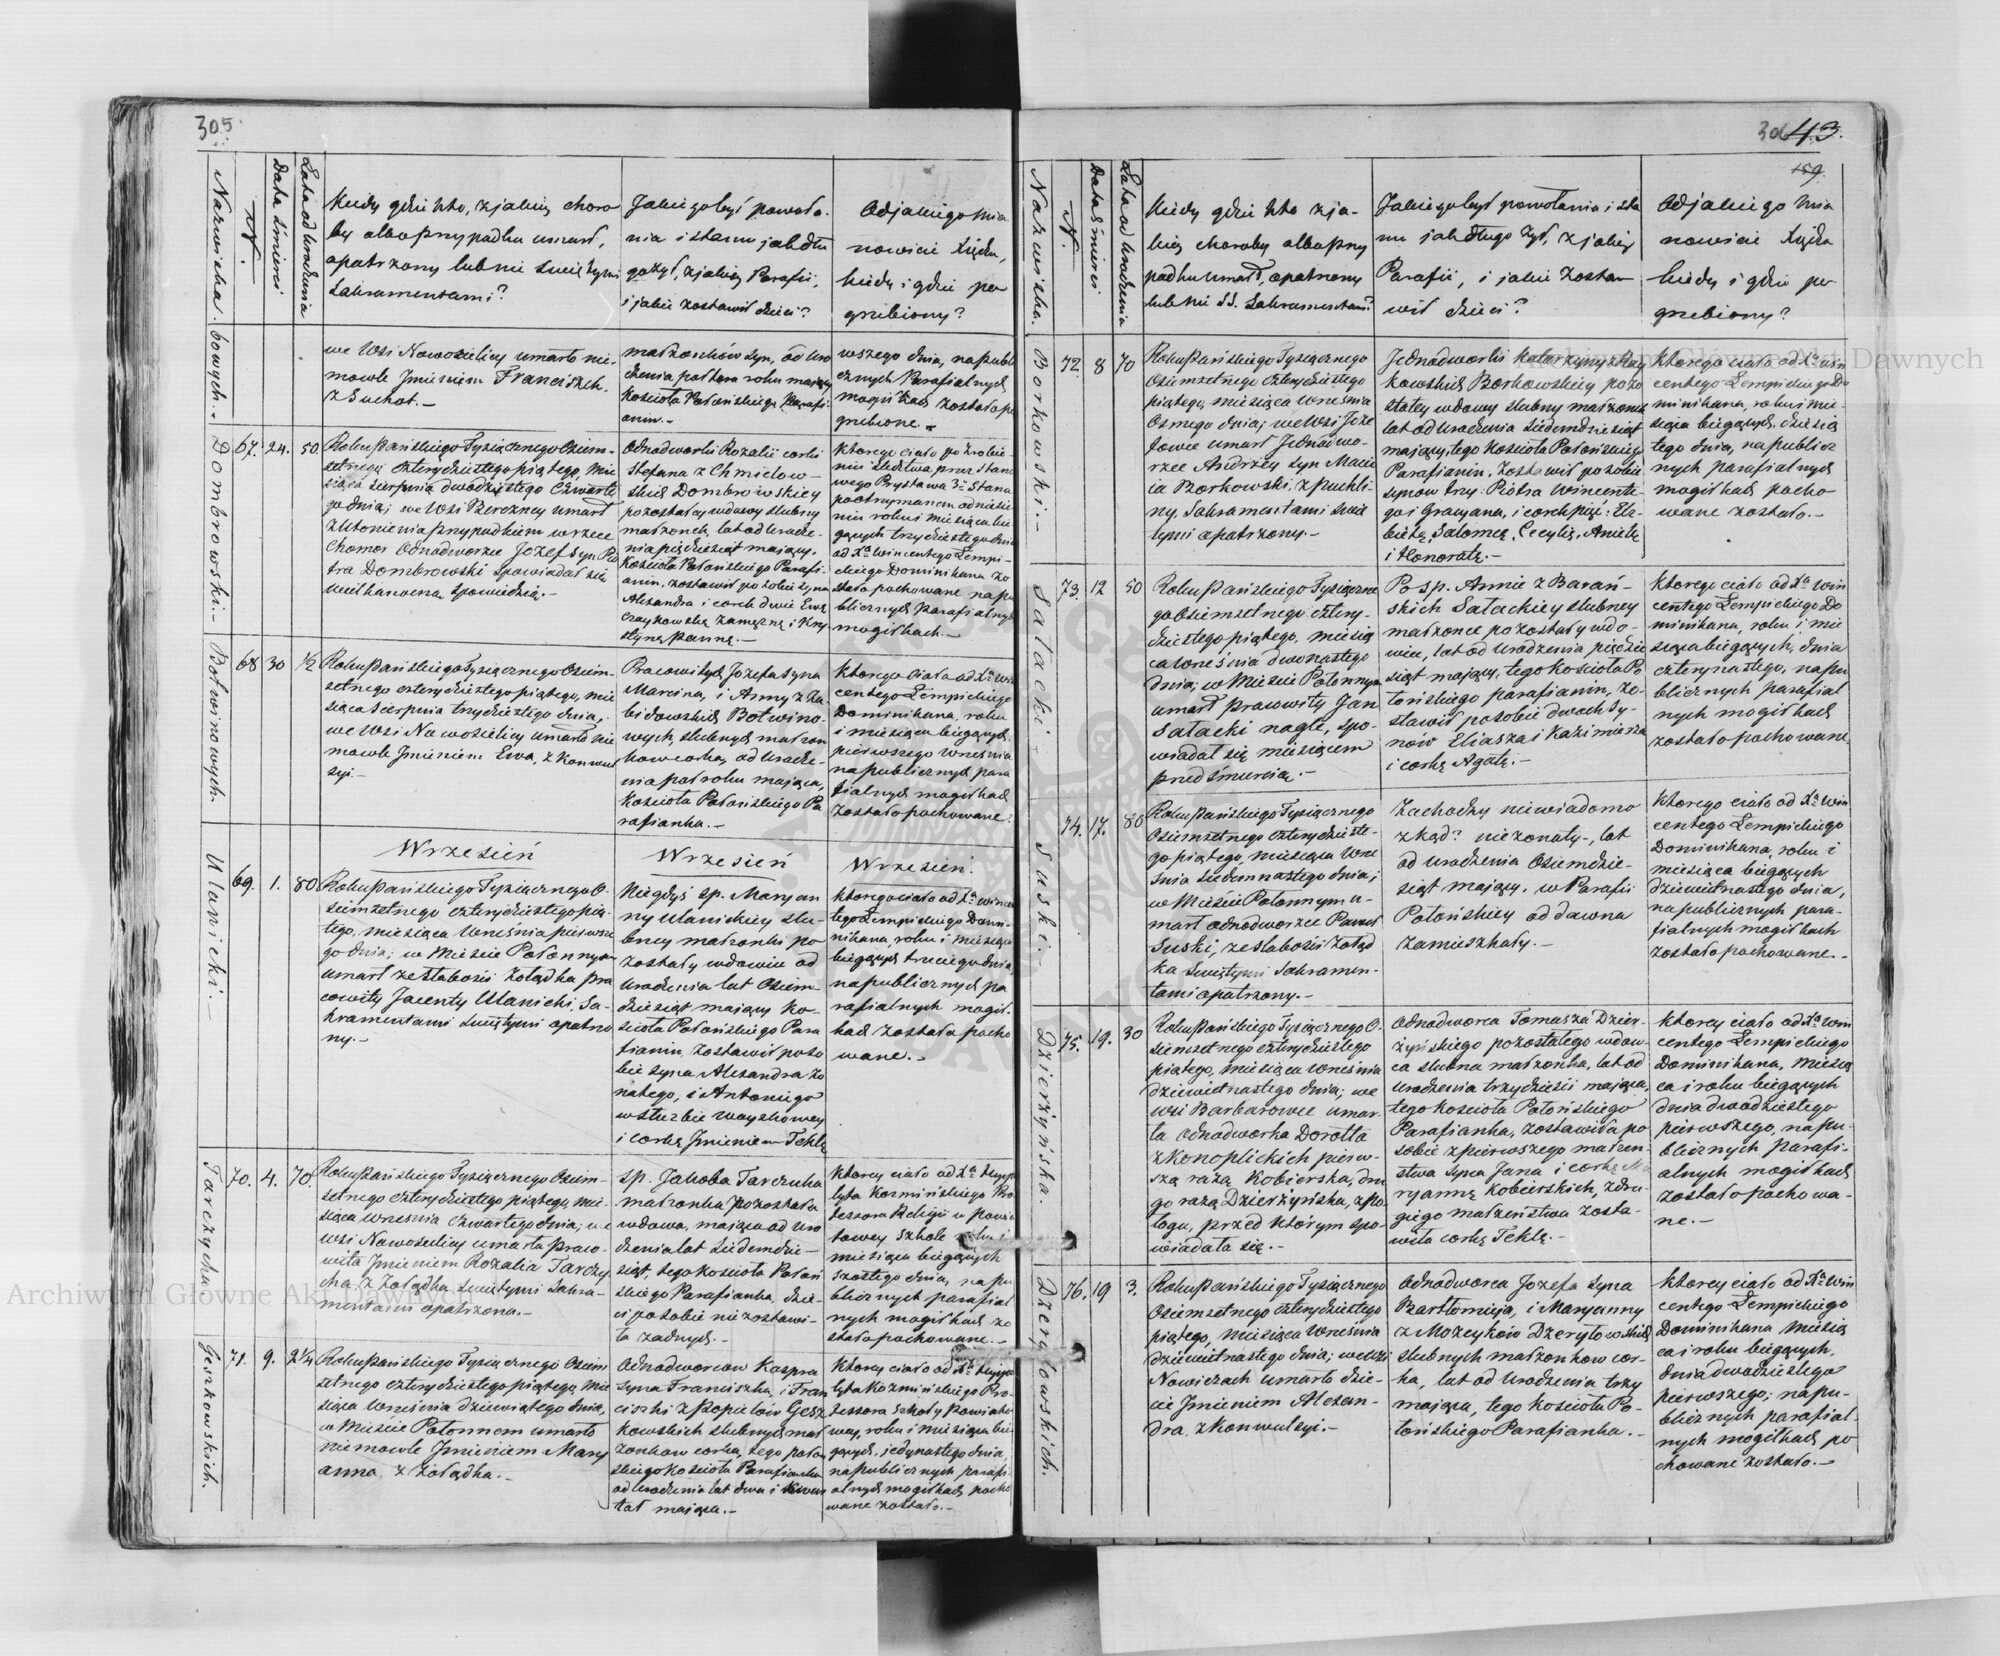 305.
Nazwiska.
N.
Data śmierci
Lata od urodzenia
Kiedy gdzie kto, z jakiej choro
by albo przypadku umarł,
opatrzony lub nie świętymi
Sakramentami?
Jakiego był powoła-
nia i stanu jak dłu
go żył, z jakiej Parafii,
i jakie zostawił dzieci?
Od jakiego mia
nowicie Xiędza,
kiedy i gdzie po
grzebiony?
bowych.-
we Wsi Nowosielicy umarło nie-
mowle Imieniem Franciszek,
z Suchot.-
małżonków syn, od uro
dzenia półtora roku mający
Kościoła Połońskiego Parafi-
anin.-
wszego dnia, na publi
cznych Parafialnych
mogiłkach zostało po
grzebione.-
Dombrowski.-
67. 24. 50.
Roku Pańskiego Tysiącznego Osiem-
setnego czterydziestego piątego, mie
siąca Sierpnia dwadziestego czwarte
go dnia; we Wsi Bereznej umarł
z utonienia przypadkiem w rzece
Chomor Odnadworzec Jozef syn Pio
tra Dombrowski spowiadał się
wielkanocną spowiedzią.-
Odnadworki Rozalii corki
Stefana z Chmielow-
skich Dombrowskiey
pozostałey wdowy slubny
małżonek, lat od urodze-
nia pięćdziesiąt mający,
Kościoła Połońskiego Parafi-
anin, zostawił po sobie syna
Alexandra i corek dwie Ewę
Czaykowską zamężną i Kry-
stynę pannę.-
Ktorego ciało po zrobie-
niu śledztwa przez Stano
wego Prystawa 3go Stana
od Xa Wincentego Łempi-
ckiego Dominikana zo
stało pochowane na pu
blicznych parafialnych
mogiłkach.-
Botwinowych.
68 30 ½
Roku Pańskiego Tysiącznego Osiem-
setnego czterydziestego piątego, mie
siąca Sierpnia trzydziestego dnia,
we Wsi Nowosielicy umarło nie
mowle Imieniem Ewa, z Konwul
syi.-
Pracowitych Jozefa syna
Marcina, i Anny z Za
bidowskich Botwino-
wych, slubnych małżon
kow corka, od urodze-
nia pół roku mająca,
Kościoła Połońskiego Pa
rafianka.-
ktorego ciało od Xa Win
centego Łempickiego
Dominikana, roku
i miesiąca bieżących
pierwszego Września
na publicznych para
fialnych mogiłkach
zostało pochowane.
Wrzesień
Wrzesień
Wrzesień.
Ulanicki.-
69. 1. 80
Roku Pańskiego Tysiącznego O-
siemsetnego czterydziestego pią-
tego, miesiąca Września pierwsze
go dnia; w Mieście Połonnym
umarł ze słabości żołądka pra
cowity Jacenty Ulanicki, Sa-
kramentami świętymi opatrzo
ny.-
Niegdyś sp. Maryan
ny Ulanickiey slu-
bney małżonki po
zostały wdowiec od
urodzenia lat Osiem-
dziesiąt mający Ko-
ścioła Połońskiego Para
fianin, zostawił po so
bie syna Alexandra żo
natego, i Antoniego
w służbie woyskowey
i corkę Imieniem Teklę
ktorego ciało od Xa Wincen
tego Łempickiego Domi-
nikana, roku i miesiąca
bieżących trzeciego dnia,
na publicznych pa
rafialnych mogił-
kach zostało pocho
wane.-
Tarczycha
70. 4. 70
Roku Pańskiego Tysiącznego Osiem-
setnego czterydziestego piątego, mie
siąca Września czwartego dnia; we
Wsi Nowosielicy umarła praco-
wita Imieniem Rozalia Tarczy
cha, z żołądka, świętymi Sakra-
mentami opatrzona.-
sp. Jakoba Tarczucha
małżonka pozostała
wdowa, mająca od uro
dzenia lat siedemdzie-
siąt, tego Kościoła Połoń
skiego Parafianka, dzie-
ci po sobie nie zostawi-
ła żadnych.-
ktorey ciało od Xa Hyppo
lyta Kozmińskiego Pro
fessora Religii w powia
towey Szkole roku i
miesiąca bieżących
szóstego dnia, na pu
blicznych parafial
nych mogiłkach zo
stało pochowane.-
Geszkowskich.
71. 9. 2¼
Roku Pańskiego Tysiącznego Osiem
setnego czterydziestego piątego, mie
siąca Września dziewiątego dnia,
w Mieście Połonnem umarło
niemowle Imieniem Mary
anna z żołądka.-
Odnadworcow Kaspra
syna Franciszka, i Fran
ciszki z Popielow Gesz
kowskich slubnych mał
żonkow corka, tego Połoń
skiego Kościoła Parafianka
od urodzenia lat dwa i kwar
tał mająca.-
Ktorey ciało od Xa Hyppo
lyta Kozmińskiego Pro-
fessora Szkoły Powiato-
wey, roku i miesiąca bie-
żących, jedynastego dnia,
na publicznych parafi-
alnych mogiłkach pocho
wane zostało.-
306
43.
159.
Nazwisko.
N.
Data śmierci
Lata od urodzenia
Kiedy gdzie kto z ja-
kiey choroby albo przy
padku umarł, opatrzony
lub nie SS. Sakramentami?
Jakiego był powołania i sta
nu jak długo żył, z jakiey
Parafii, i jakie zosta-
wił dzieci?
Od jakiego mia
nowicie Xiędza
kiedy i gdzie po
grzebiony?
Borkowski.-
72. 8 70
Roku Pańskiego Tysiącznego
Osiemsetnego czterydziestego
piątego, miesiąca Września
Osmego dnia; we Wsi
umarł Jednadwo-
rzec Andrzey syn Macie
ia Borkowski, z puchli-
ny, Sakramentami świę
tymi opatrzony.-
Jednadworki Katarzyny z
kowskich Borkowskiey pozo
stałey wdowy slubny małżonek
lat od urodzenia siedmdziesiąt
mający, tego Kościoła Połońskiego
Parafianin, zostawił po sobie
synow trzy: Piotra Wincente-
go i Gracyana, i corek pięć: Elz-
bietę, Salomeę, Cecylię, Anielę
i Honoratę.-
ktorego ciało od Xa Win
centego Łempickiego Do
minikana, roku i mie-
siąca bieżących, dziesią
tego dnia, na publicz
nych parafialnych
mogiłkach pocho
wane zostało.-
Sałacki.-
73. 12 50
Roku Pańskiego Tysiączne
go Osiemsetnego cztery-
dziestego piątego, miesią
ca Września dwonastego
dnia; w Mieście Połonnym
umarł pracowity Jan
Sałacki nagle, spo-
wiadał się miesiącem
przed śmiercią.-
Po sp. Annie z Barań-
skich Sałackiey slubney
małżonce pozostały wdo-
wiec, lat od urodzenia pięćdzie
siąt mający, tego Kościoła Po
łońskiego parafianin, zo-
stawił po sobie dwoch sy-
nów Eliasza i Kazimierza
i corkę Agatę.-
ktorego ciało od Xa Win
centego Łempickiego Do
minikana, roku i mie
siąca bieżących, dnia
czternastego, na pu
blicznych parafial
nych mogiłkach
zostało pochowane.
Suski.-
74. 17. 80
Roku Pańskiego Tysiącznego
Osiemsetnego czterydzieste-
go piątego, miesiąca Wrze
śnia siedmnastego dnia;
w Mieście Połonnym u-
marł odnadworzec Paweł
Suski, ze słabości żołąd
ka świętymi Sakramen-
tami opatrzony.-
Zachodzy niewiadomo
zkąd? nieżonaty, lat
od urodzenia Osiemdzie-
siąt mający, w Parafii
Połońskiey od dawna
zamieszkały.-
ktorego ciało od Xa Win
centego Łempickiego
Dominikana, roku i
miesiąca bieżących
dziewietnastego dnia,
na publicznych para-
fialnych mogiłkach
zostało pochowane.-
Dzierżyńska.
75. 19. 30
Roku Pańskiego Tysiącznego O-
siemsetnego czterydziestego
piątego, miesiąca Września
dziewietnastego dnia; we
Wsi Barbarowce umar-
ła odnadworka Dorotta
z Konoplickich pierw-
szą razą Kobierska, dru
gą razą Dzierżyńska, z po
łogu, przed którym spo-
wiadała się.-
Odnadworca Tomasza Dzier-
żyńskiego pozostałego wdow-
ca slubna małżonka, lat od
urodzenia trzydzieści mająca,
tego Kościoła Połońskiego
Parafianka, zostawiła po
sobie z pierwszego małżeń-
stwa syna Jana i corkę Ma
ryannę Kobierskich, z dru-
giego małżeństwa zosta-
wiła corkę Teklę.-
ktorey ciało od Xa Win
centego Łempickiego
Dominikana, miesią
ca i roku bieżących
dnia dwadziestego
pierwszego, na pu-
blicznych parafi-
alnych mogiłkach
zostało pochowa-
ne.-
Dzeryłowskich.
76. 19 3.
Roku Pańskiego Tysiącznego
Osiemsetnego czterydziestego
piątego, miesiąca Września
dziewietnastego dnia; we Wsi
Nowiczach umarło dzie-
cie Imieniem Alexan-
dra, z Konwulsyi.-
Odnadworca Jozefa syna
Bartłomieja, i Maryanny
z Możeykow Dzeryłowskich
slubnych małżonkow cor-
ka, lat od urodzenia trzy
mająca, tego Kościoła Po-
łońskiego Parafianka.-
ktorey ciało od Xa Win
centego Łempickiego
Dominikana miesią
ca i roku bieżących,
dnia dwadziestego
pierwszego; na pu-
blicznych parafial-
nych mogiłkach po
chowane zostało.-
Archiwum Główne Akt Dawnych
Archiwum Główne Akt Dawnych